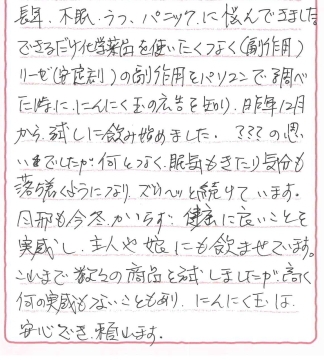 長年、不眠、うつ、パニック、に悩んできました
できるだけ化学薬品を使いたくなく(副作用)
リーゼ(安定剤)の副作用をパソコンで調べ
た時に、にんにく玉の広告を知り、昨年12月
から、試しに飲み始めました。???の思
いをでしたが、何となく、眠気もきたり気分も
落ち着くようになり、ズーッと続けています。
風邪も今冬、かいらず、健康に良いことを
実感し、主人や娘にも飲ませています。
これまで数々の商品を試しましたが、高く
何の実感もないこともあり、にんにく玉は
安心でき、頼います。